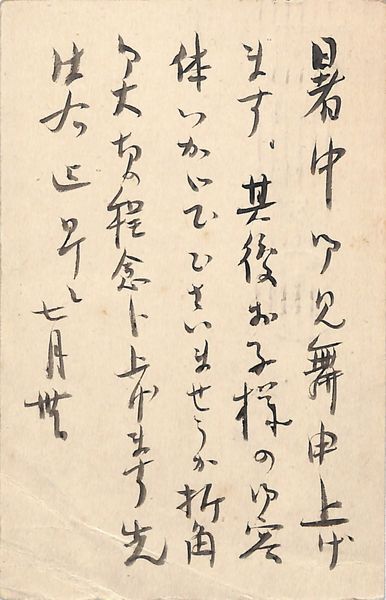 暑中御見舞申上げ
ます、其後お子様の御容
体いかゞでございませうか折角
の程念じ上げます 先
は右迄 早々
七月